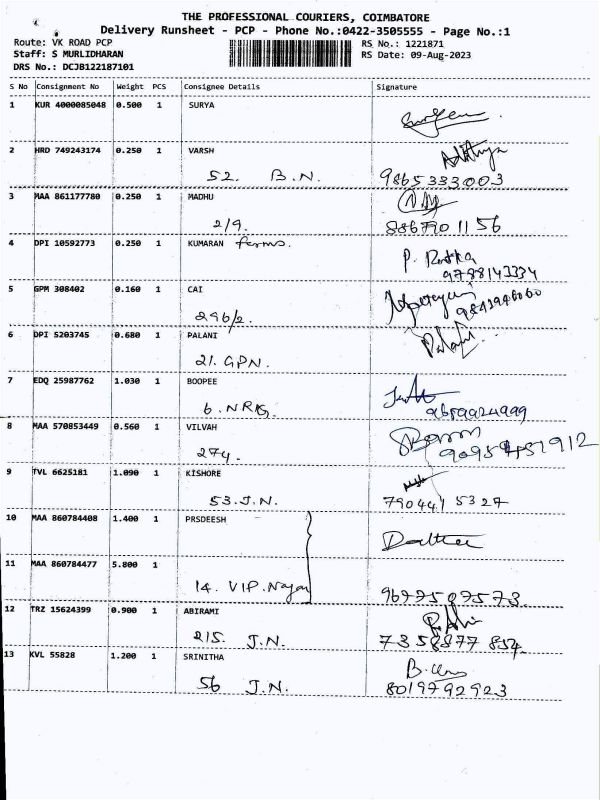 THE PROFESSIONAL COURIERS, COIMBATORE
Delivery Runsheet - PCP - Phone No.:0422-3505555 - Page No.:1
Route: VK ROAD PCP RS No.: 1221871
Staff: S MURLIDHARAN RS Date: 09-Aug-2023
DRS No.: DCJB122187101
S No Consignment No Weight PCS Consignee Details Signature
1 KUR 4000085048 0.500 1 SURYA
2 HRD 749243174 0.250 1 VARSH
52. B.N. 9865333003
3 MAA 861177780 0.250 1 MADHU
2/9. 8867901156
4 DPI 10592773 0.250 1 KUMARAN Farms.
9788143334
5 GPM 308402 0.160 1 CAI
296/2.
6 DPI 5203745 0.680 1 PALANI
21. GPN.
7 EDQ 25987762 1.030 1 BOOPEE
6. NRKG.
8 MAA 570853449 0.560 1 VILVAH
274.
9 TVL 6625181 1.090 1 KISHORE
53. J.N. 790441 5327
10 MAA 860784408 1.400 1 PRSDEESH
11 MAA 860784477 5.800 1
14. VIP. Nagar 9677507573.
12 TRZ 15624399 0.900 1 ABIRAMI
215. J.N. 7358377 854.
13 KVL 55828 1.200 1 SRINITHA
56 J.N. 8019792923